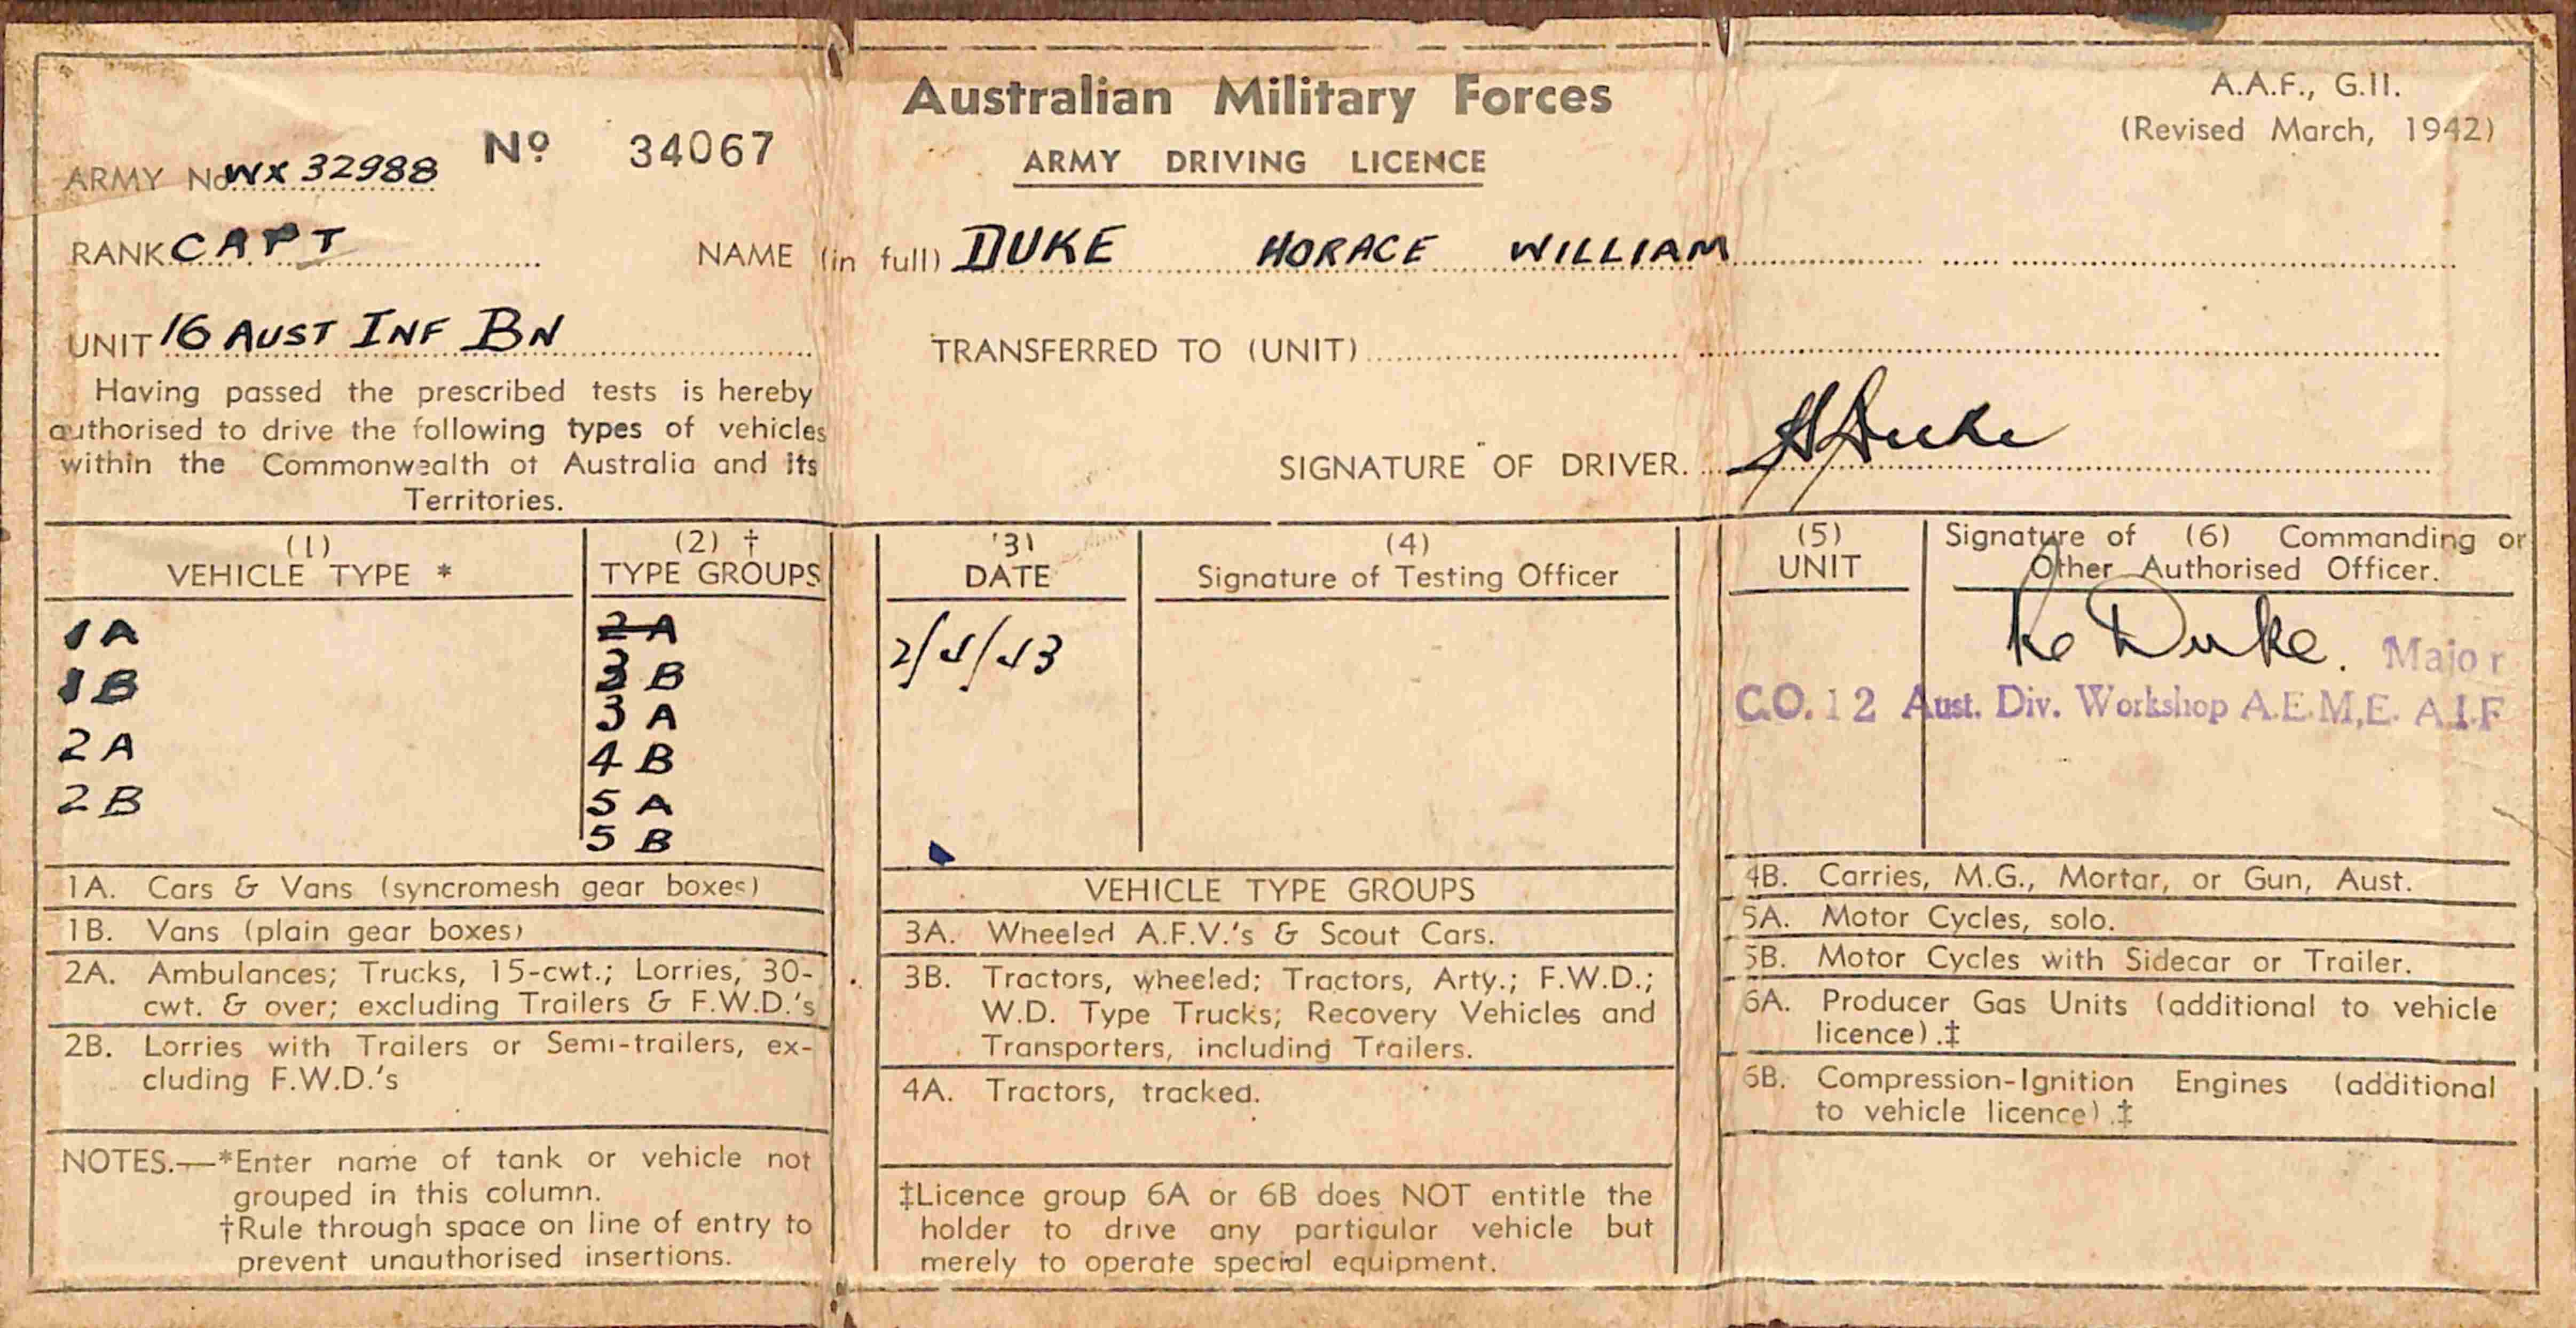 Australian Military Forces
A.A.F., G.11.
(Revised March, 1942)
ARMY No. WX 32988 Nº 34067
ARMY DRIVING LICENCE
RANK CAPT NAME (in full) DUKE HORACE WILLIAM
UNIT 16 AUST INF BN TRANSFERRED TO (UNIT)
Having passed the prescribed tests is hereby
authorised to drive the following types of vehicles
within the Commonwealth of Australia and its
Territories.
SIGNATURE OF DRIVER. H Duke
(1)
VEHICLE TYPE *
1A
1B
2A
2B
(2) †
TYPE GROUPS
2 A
3 B
3 A
4 B
5 A
5 B
(3)
DATE
2/4/43
(4)
Signature of Testing Officer
(5)
UNIT
Signature of (6) Commanding or
Other Authorised Officer.
Duke. Major
C.O. 12 Aust. Div. Workshop A.E.M.E. A.I.F
1A. Cars & Vans (syncromesh gear boxes)
1B. Vans (plain gear boxes)
2A. Ambulances; Trucks, 15-cwt.; Lorries, 30-
cwt. & over; excluding Trailers & F.W.D.'s
2B. Lorries with Trailers or Semi-trailers, ex-
cluding F.W.D.'s
NOTES.—*Enter name of tank or vehicle not
grouped in this column.
†Rule through space on line of entry to
prevent unauthorised insertions.
VEHICLE TYPE GROUPS
3A. Wheeled A.F.V.'s & Scout Cars.
3B. Tractors, wheeled; Tractors, Arty.; F.W.D.;
W.D. Type Trucks; Recovery Vehicles and
Transporters, including Trailers.
4A. Tractors, tracked.
‡Licence group 6A or 6B does NOT entitle the
holder to drive any particular vehicle but
merely to operate special equipment.
4B. Carries, M.G., Mortar, or Gun, Aust.
5A. Motor Cycles, solo.
5B. Motor Cycles with Sidecar or Trailer.
6A. Producer Gas Units (additional to vehicle
licence).‡
6B. Compression-Ignition Engines (additional
to vehicle licence).‡